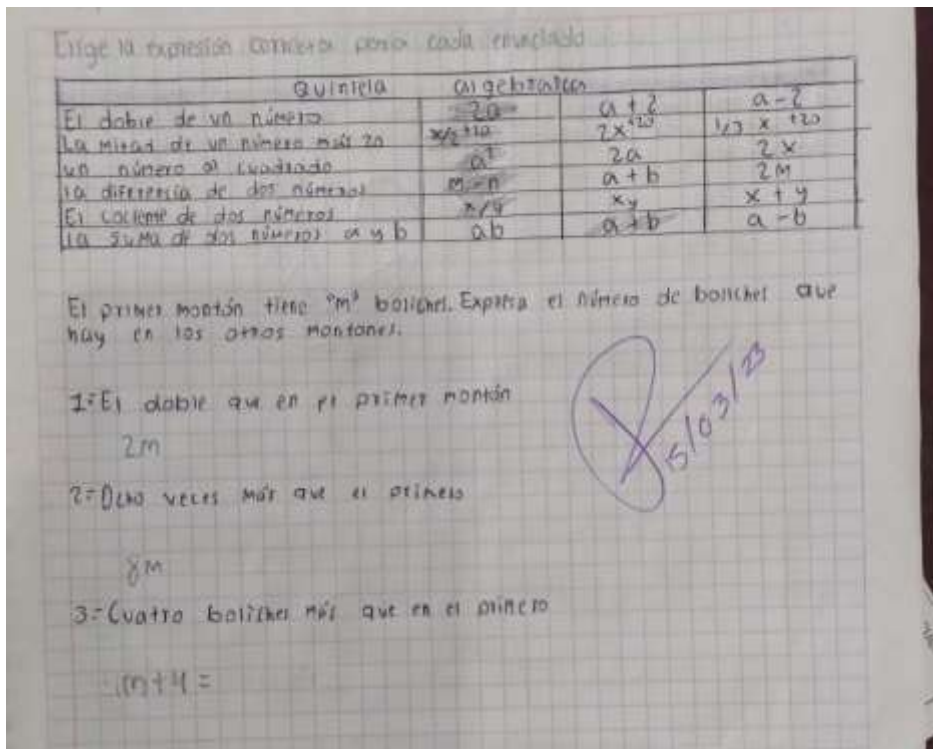 Elige la expresión correcta para cada enunciado
Quiniela algebraica
El doble de un número 2a a + 2 a - 2
La mitad de un número más 20 x/2 +20 2x +20 1/3 x +20
un número al cuadrado a² 2a 2x
la diferencia de dos números m - n a + b 2M
El cociente de dos números x/y xy x + y
la suma de dos números a y b ab a + b a - b
El primer montón tiene "m" boliches. Expresa el número de boliches que
hay en los otros montones.
1= El doble que en el primer montón
2m
2= Ocho veces más que el primero
8m
3= Cuatro boliches más que en el primero
m+4=
15/03/23